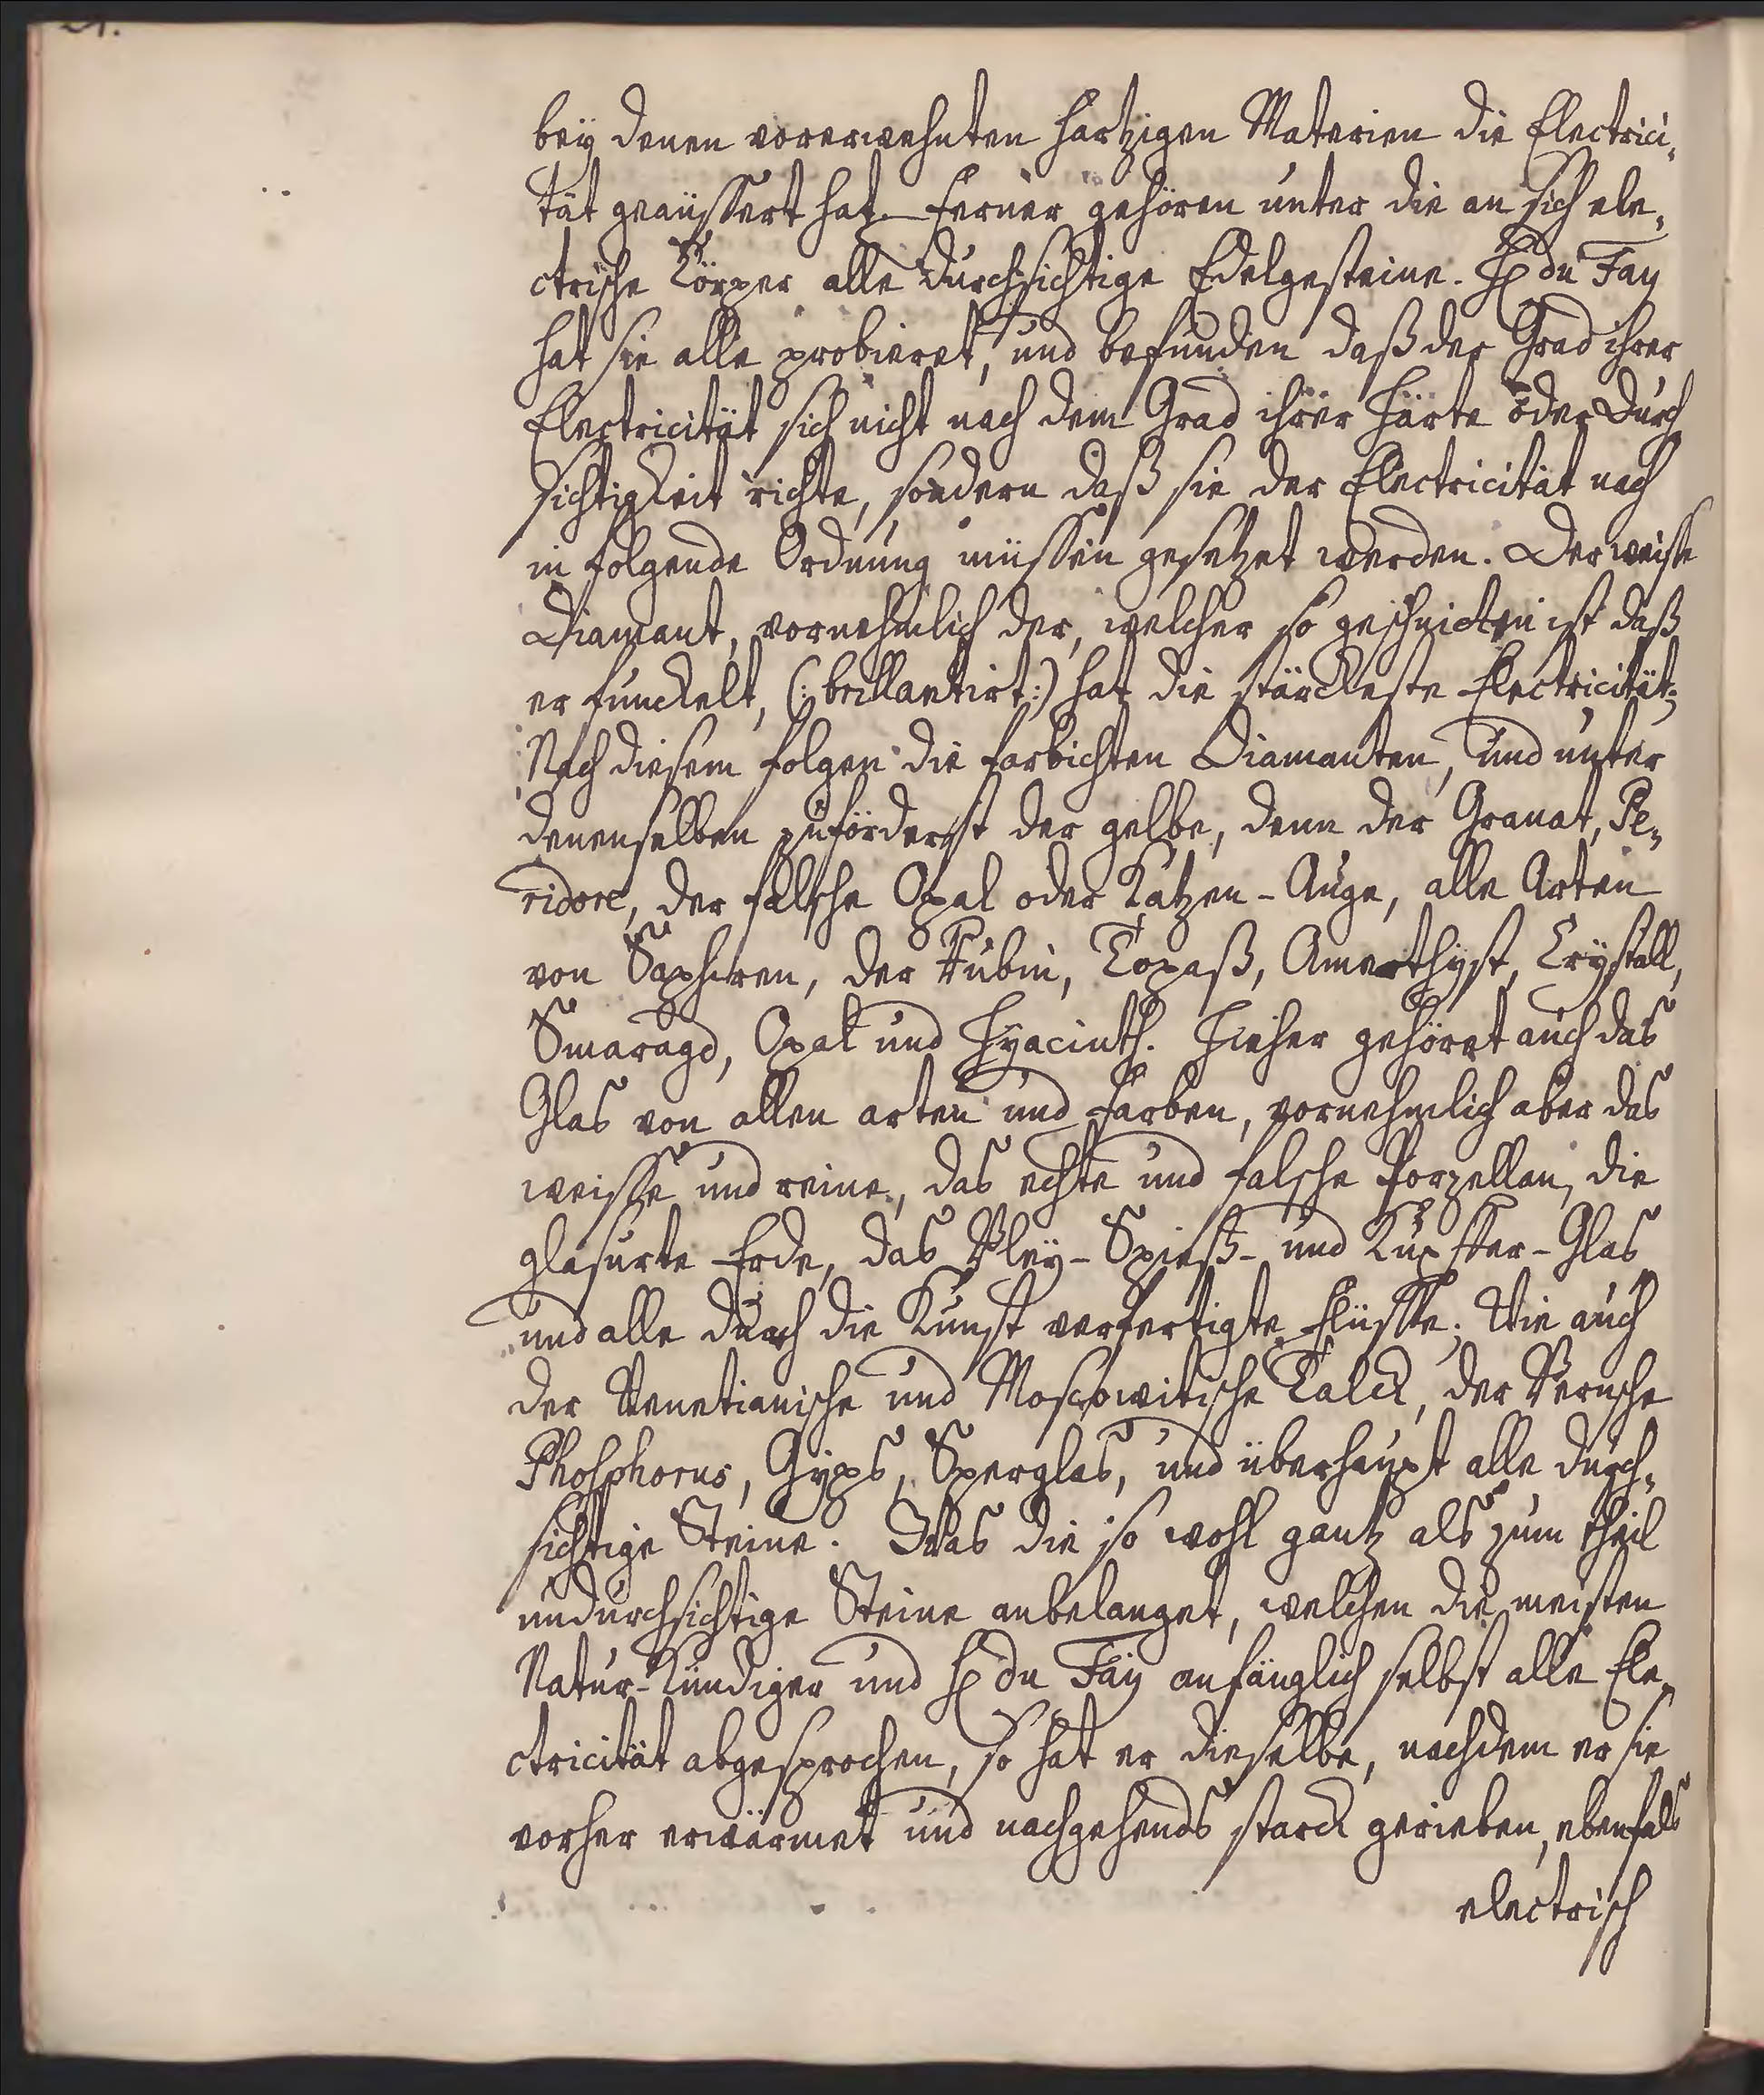 bey denen vorerwehnten hartzigen Materien die Electrici,
tät geäussert hat. Ferner gehören unter die an sich ele,
ctrische Körper alle durchsichtige Edelgesteine. H du Fay
hat sie alle probieret, und befunden daß der Grad ihrer
Electricität sich nicht nach dem Grad ihrer Härte oder Durch
sichtigkeit richte, sondern daß sie der Electricität nach
in folgende Ordnung müssen gesetzet werden. Der weisse
Diamant, vornehmlich der, welcher so geschnidten ist daß
er funckelt, (: brillantirt :) hat die stärckeste Electricität;
Nach diesem folgen die farbichten Diamanten, und unter
denenselben zuförderst der gelbe, denn der Granat, Pe,
ridore, der falsche Opal oder Katzen-Auge, alle Arten
von Saphiren, der Rubin, Topaß, Amerthyst, Crystall,
Smaragd, Opal und Hyacinth. Hieher gehöret auch das
Glas von allen arten und Farben, vornehmlich aber das
weisse und reine, das echte und falsche Porzellan, die
glasurte Erde, das Bley-Spieß- und Kupffer-Glas
und alle durch die Kunst verfertigte Flüsse. Wie auch
der Venetianische und Moscowitische Talck, der Bernsche
Phosphorus, Gyps, Sperglas, und überhaupt alle durch,
sichtige Steine. Was die so wohl gantz als zum theil
undurchsichtige Steine anbelanget, welchen die meisten
Natur-Kündiger und H du Fay anfänglich selbst alle Ele,
ctricität abgesprochen, so hat er dieselbe, nachdem er sie
vorher erwärmet und nachgehends starck gerieben, ebenfals
electrisch